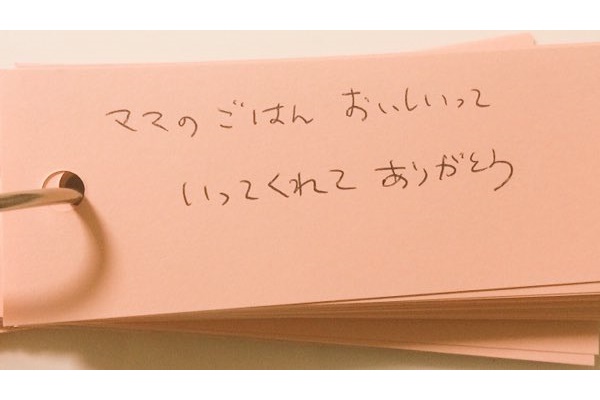 ママのごはん おいしいって
いってくれて ありがとう